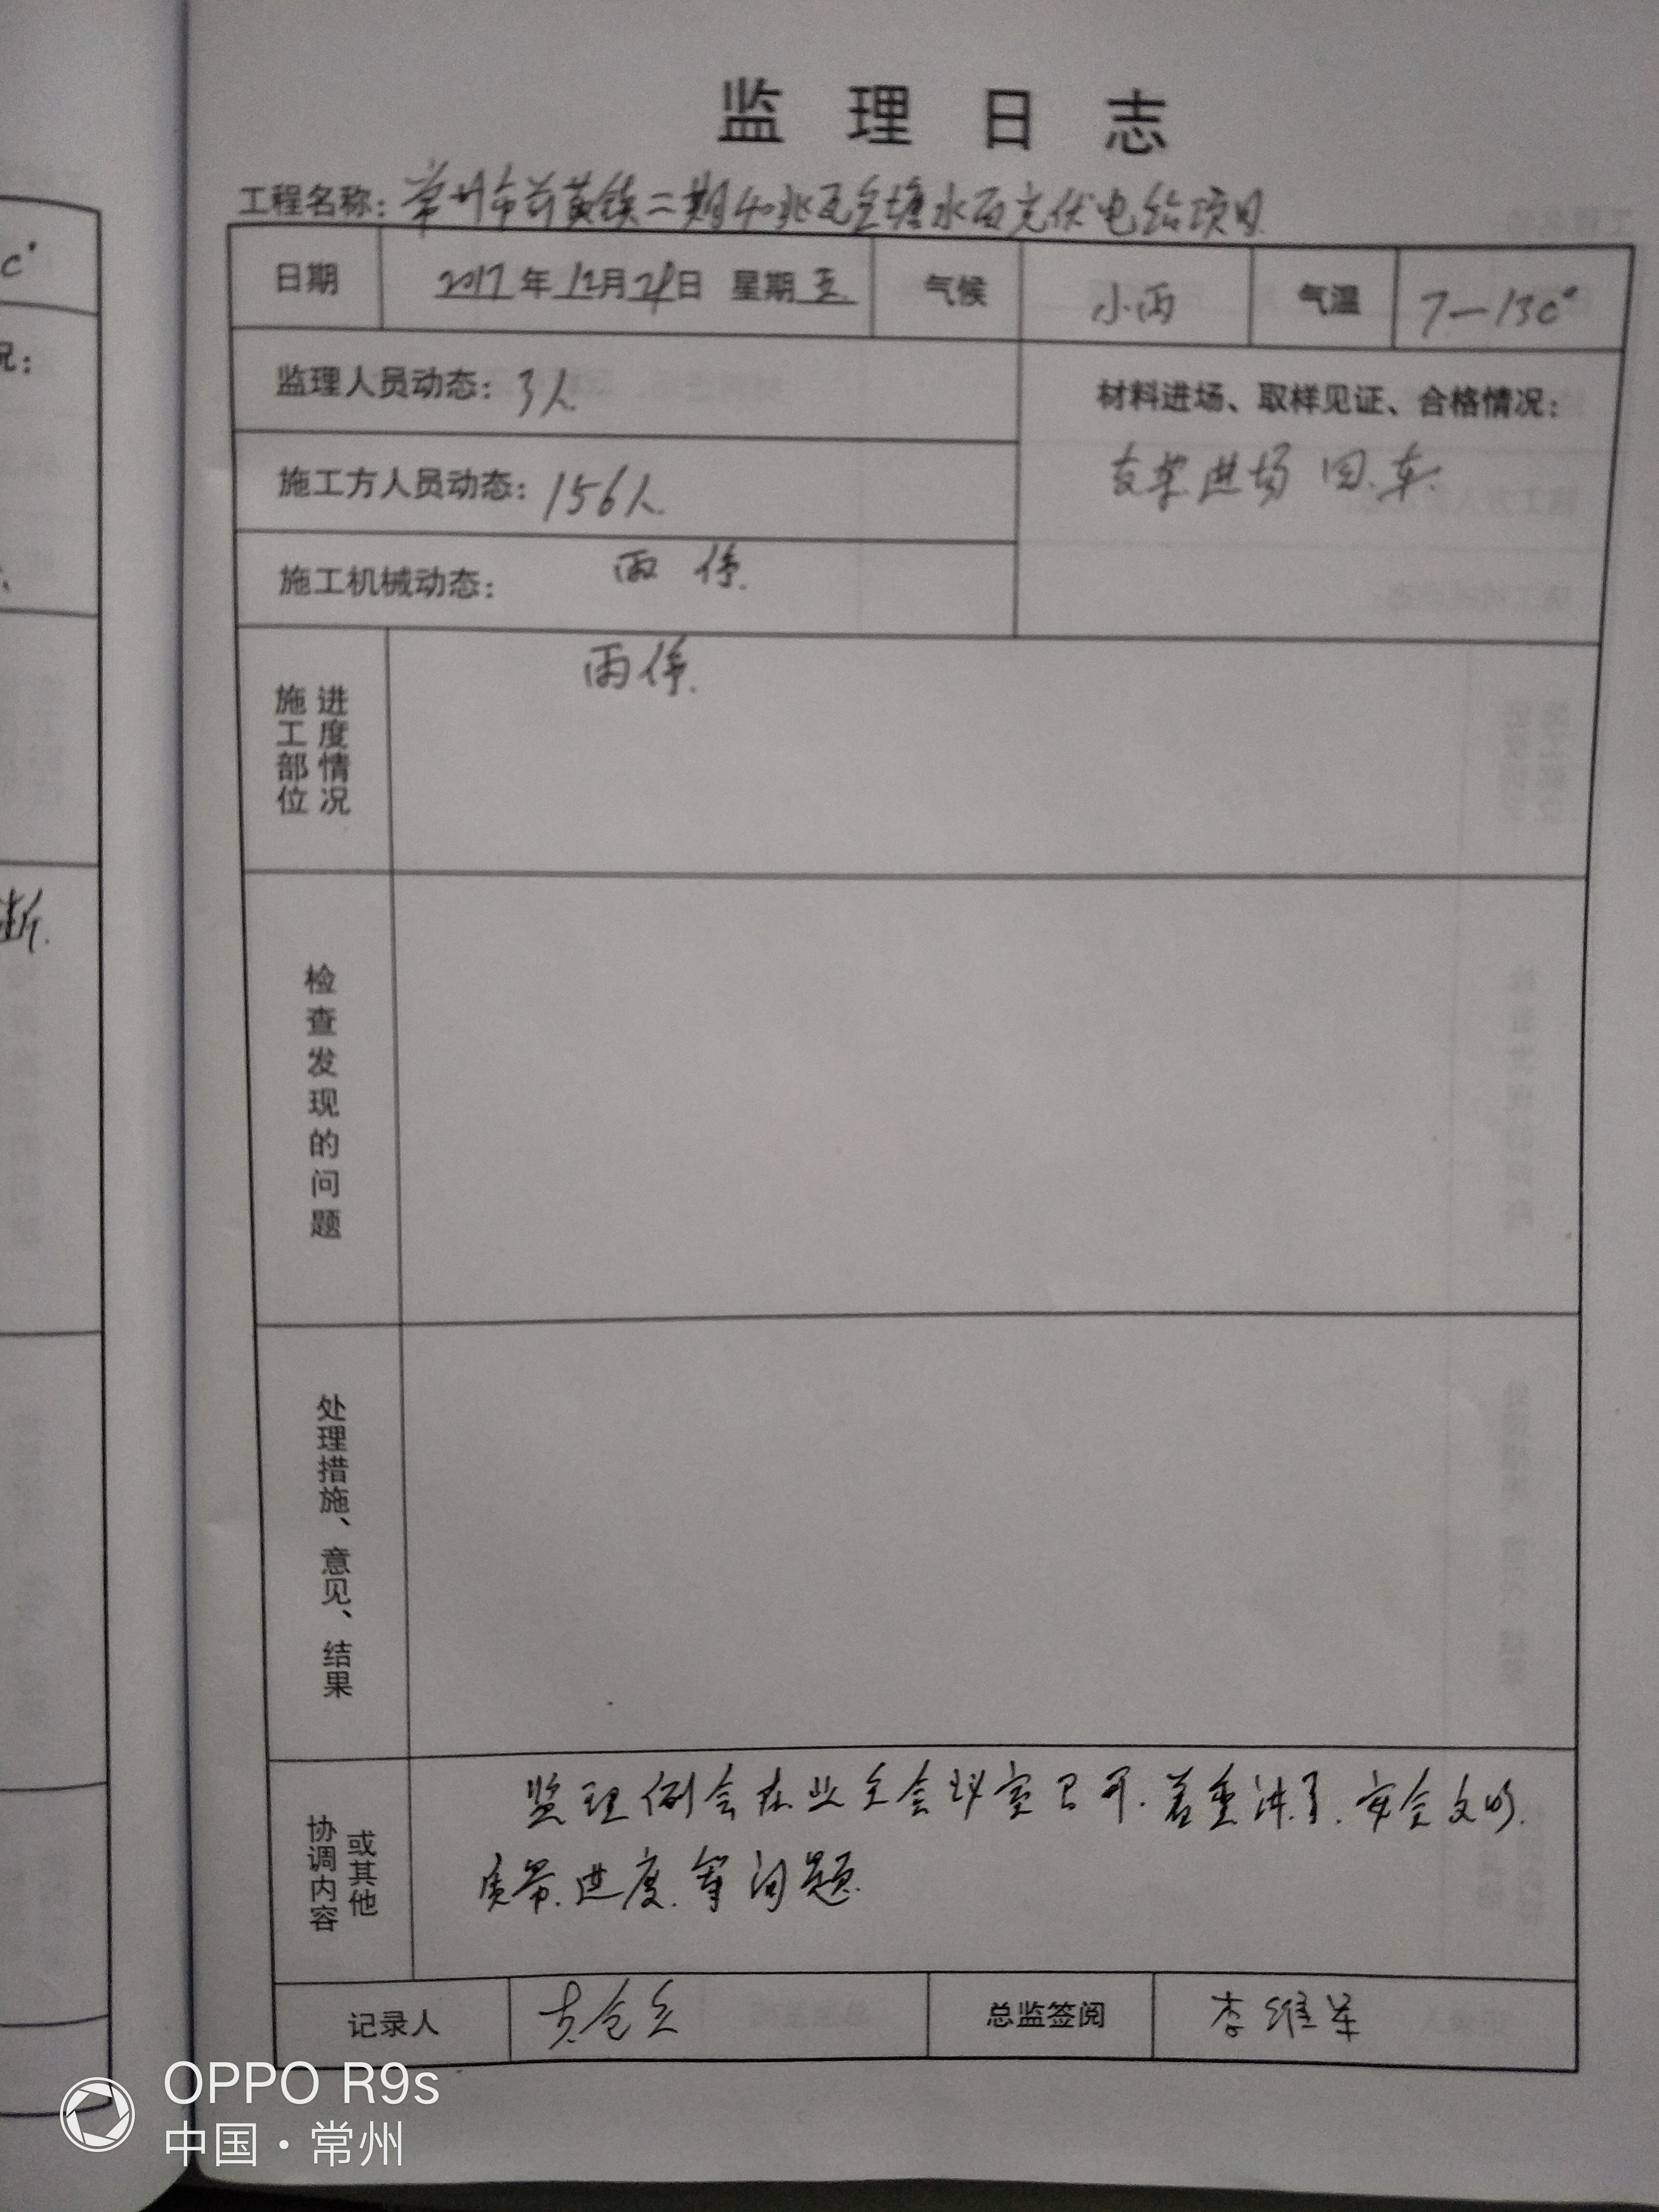 监理日志
工程名称：常州市前黄镇二期40兆瓦鱼塘水面光伏电站项目
日期 2017年12月29日 星期五 气候 小雨 气温 7—13C°
监理人员动态：3人 材料进场、取样见证、合格情况：
施工方人员动态：156人 支架进场 四车
施工机械动态： 雨停
施工部位 进度情况 雨停
检查发现的问题
处理措施、意见、结果
协调内容 或其他 监理例会在业主会议室召开.着重讲了.安全文明.
质量.进度.等问题
记录人 总监签阅 李维军
C°
况：
断.
OPPO R9s
中国·常州